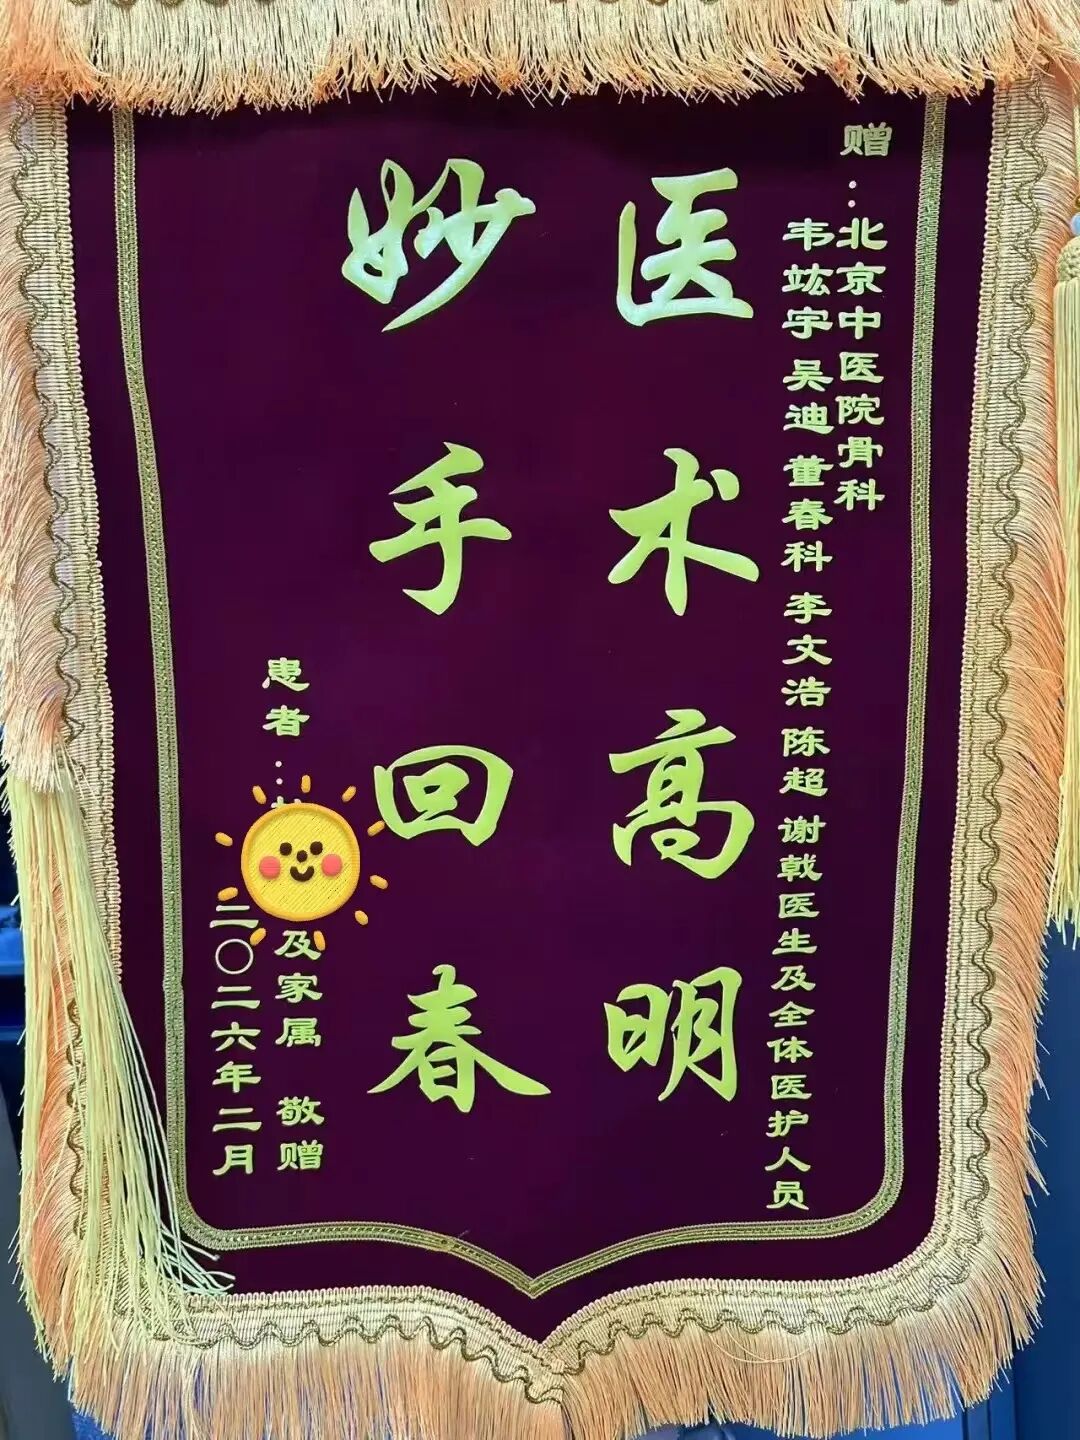 赠：北京中医院骨科
韦竑宇 吴迪 董春科 李文浩 陈超 谢戟医生及全体医护人员
医术高明
妙手回春
患者： 及家属 敬赠
二〇二六年二月